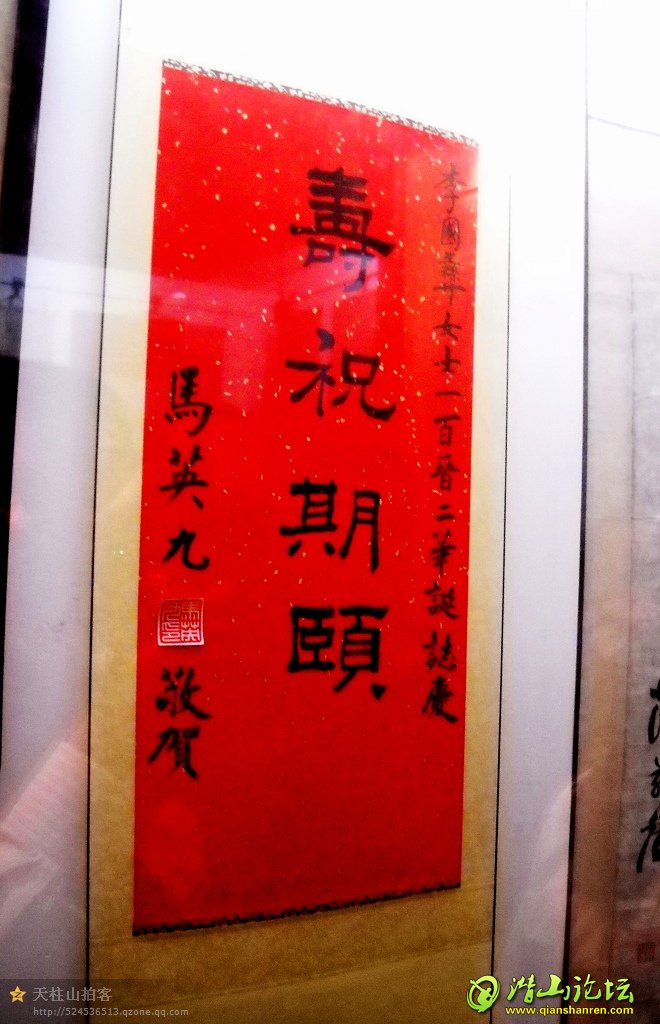 李國女士一百晉二華誕誌慶
壽祝期頤
馬英九 敬賀
天柱山拍客
http://524536513.qzone.qq.com
潜山论坛
www.qianshanren.com